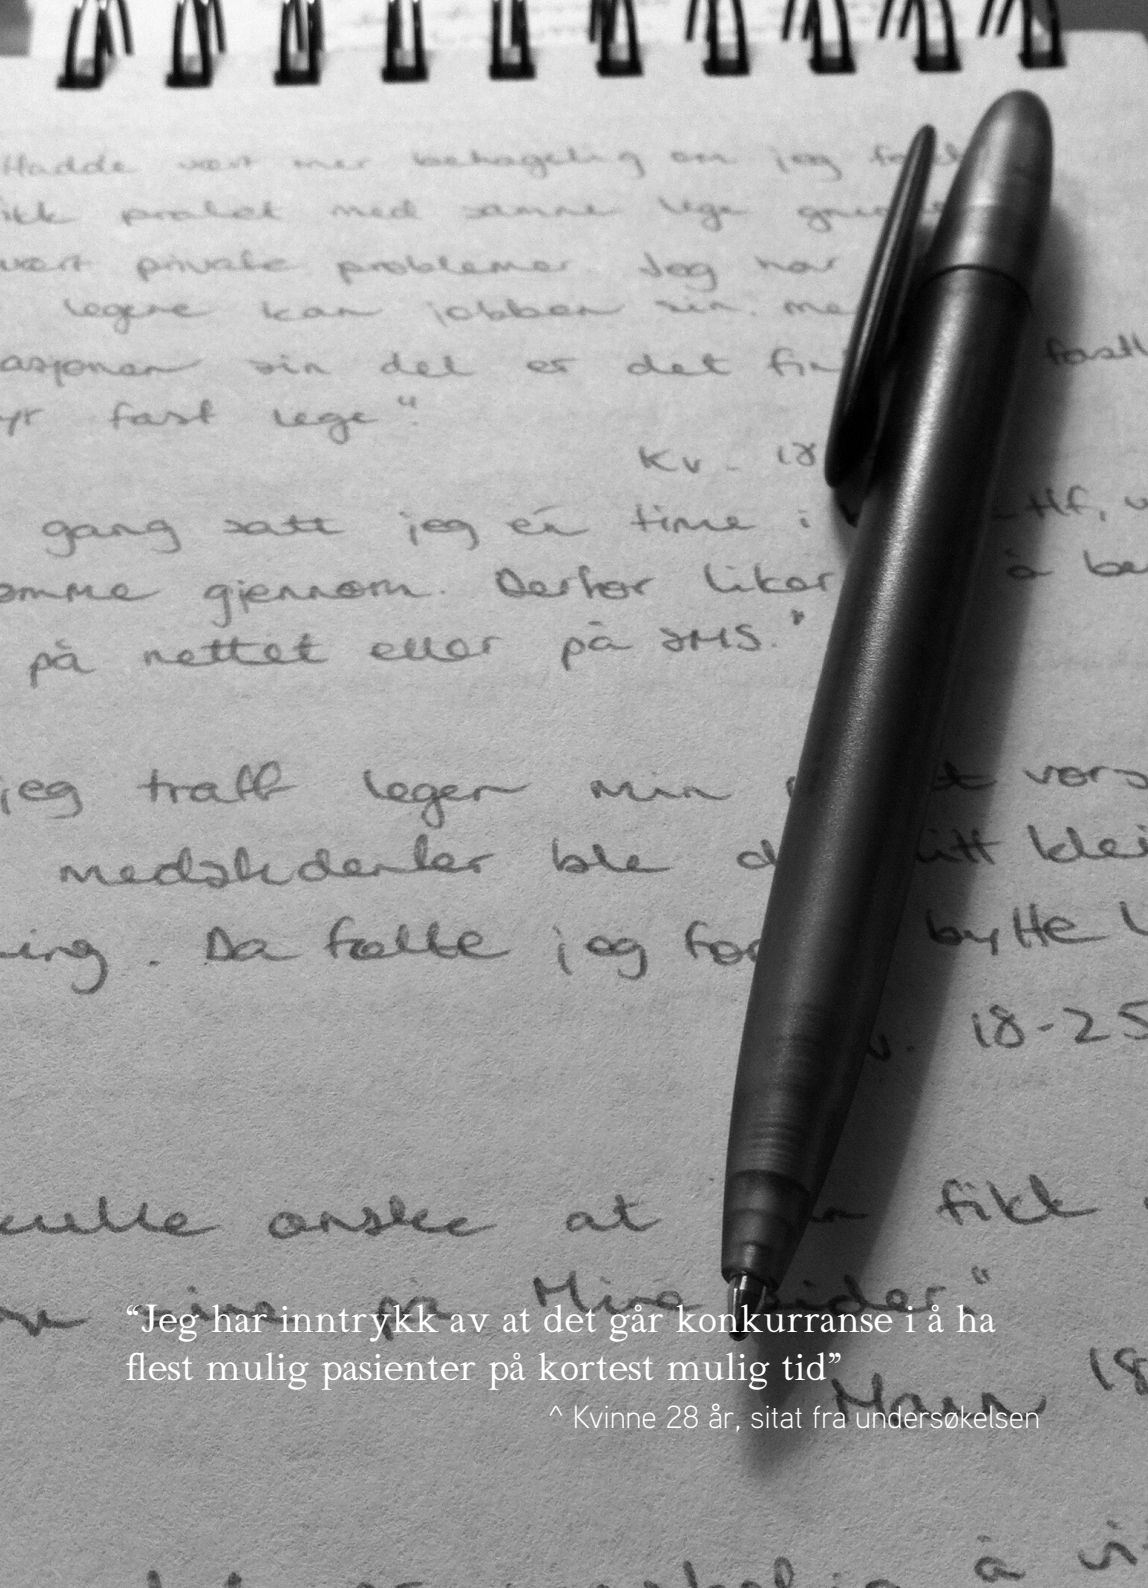 Hadde vært mer behagelig om jeg
pratet med samme lege
private problemer. Jeg har
legene kan jobben sin. me
asjonen sin del er det
yr fast lege"
Kv - 18
gang satt jeg én time i tlf, v
omme gjennom. Derfor liker å be
på nettet eller på SMS."
jeg traff legen min vors
ble litt klei
ing. Da følte jeg for bytte l
v. 18-25
kulle ønske at fikk
på Mine sider."
“Jeg har inntrykk av at det går konkurranse i å ha
flest mulig pasienter på kortest mulig tid”
Mann 18
^ Kvinne 28 år, sitat fra undersøkelsen
å vi